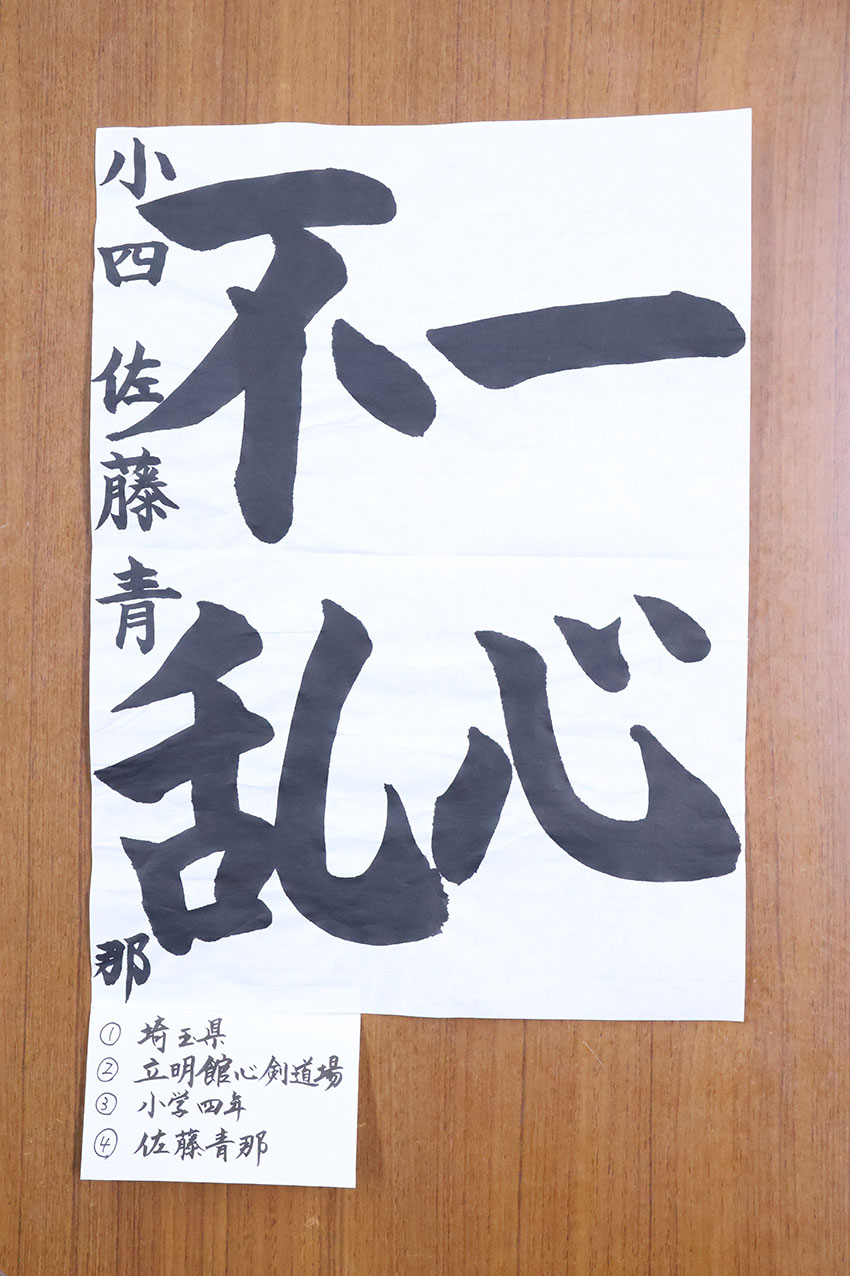 一心
不乱
小四 佐藤青那
① 埼玉県
② 立明館心剣道場
③ 小学四年
④ 佐藤青那